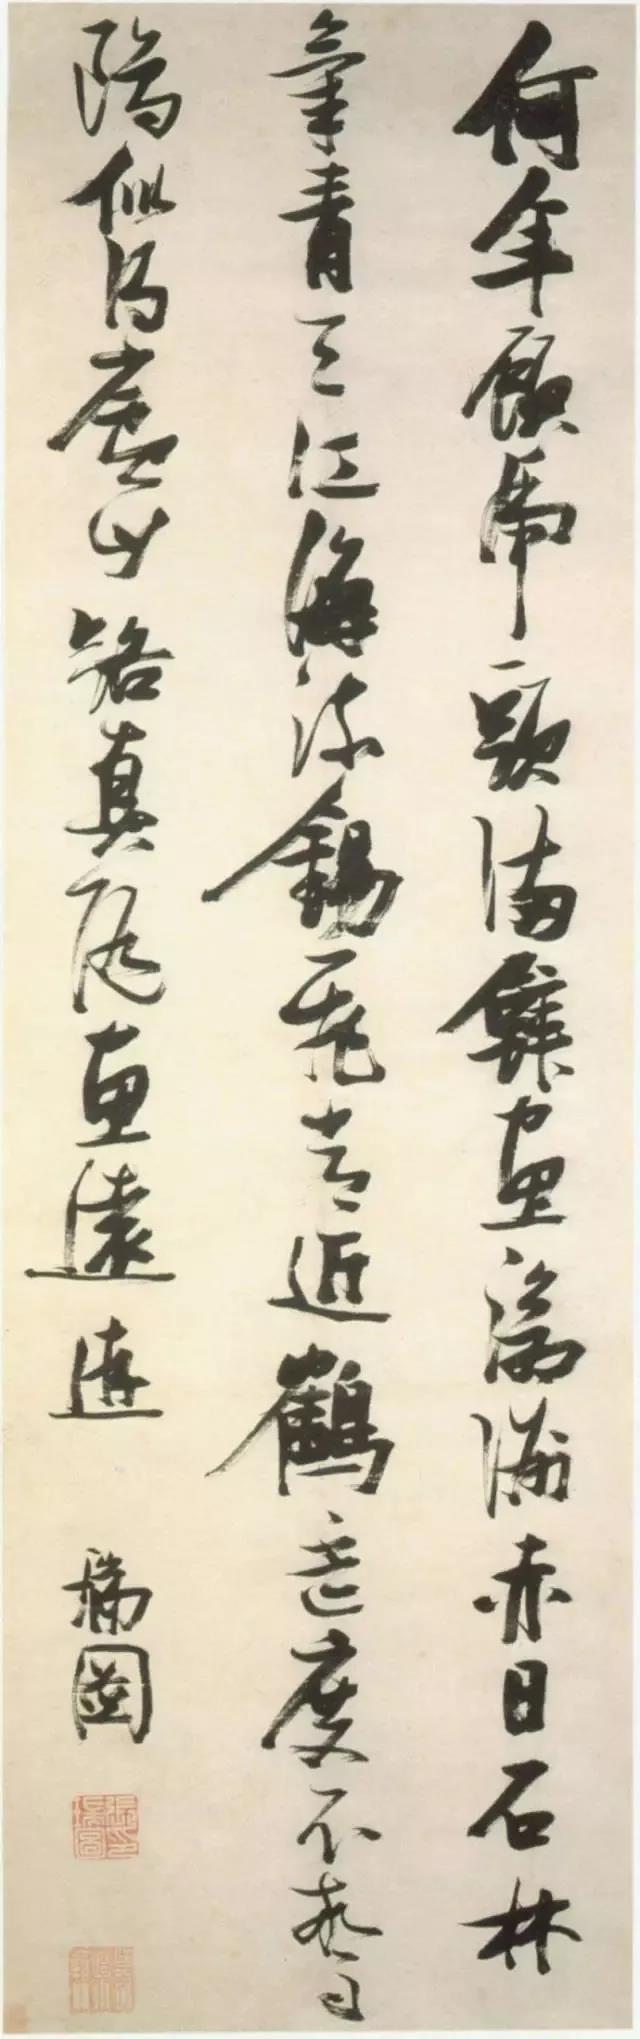 何年顧虎頭滿壁畫滄洲赤日石林
氣青天江海流錫飛常近鶴盃度不驚
鷗似得廬山路真隨惠遠遊
瑞圖